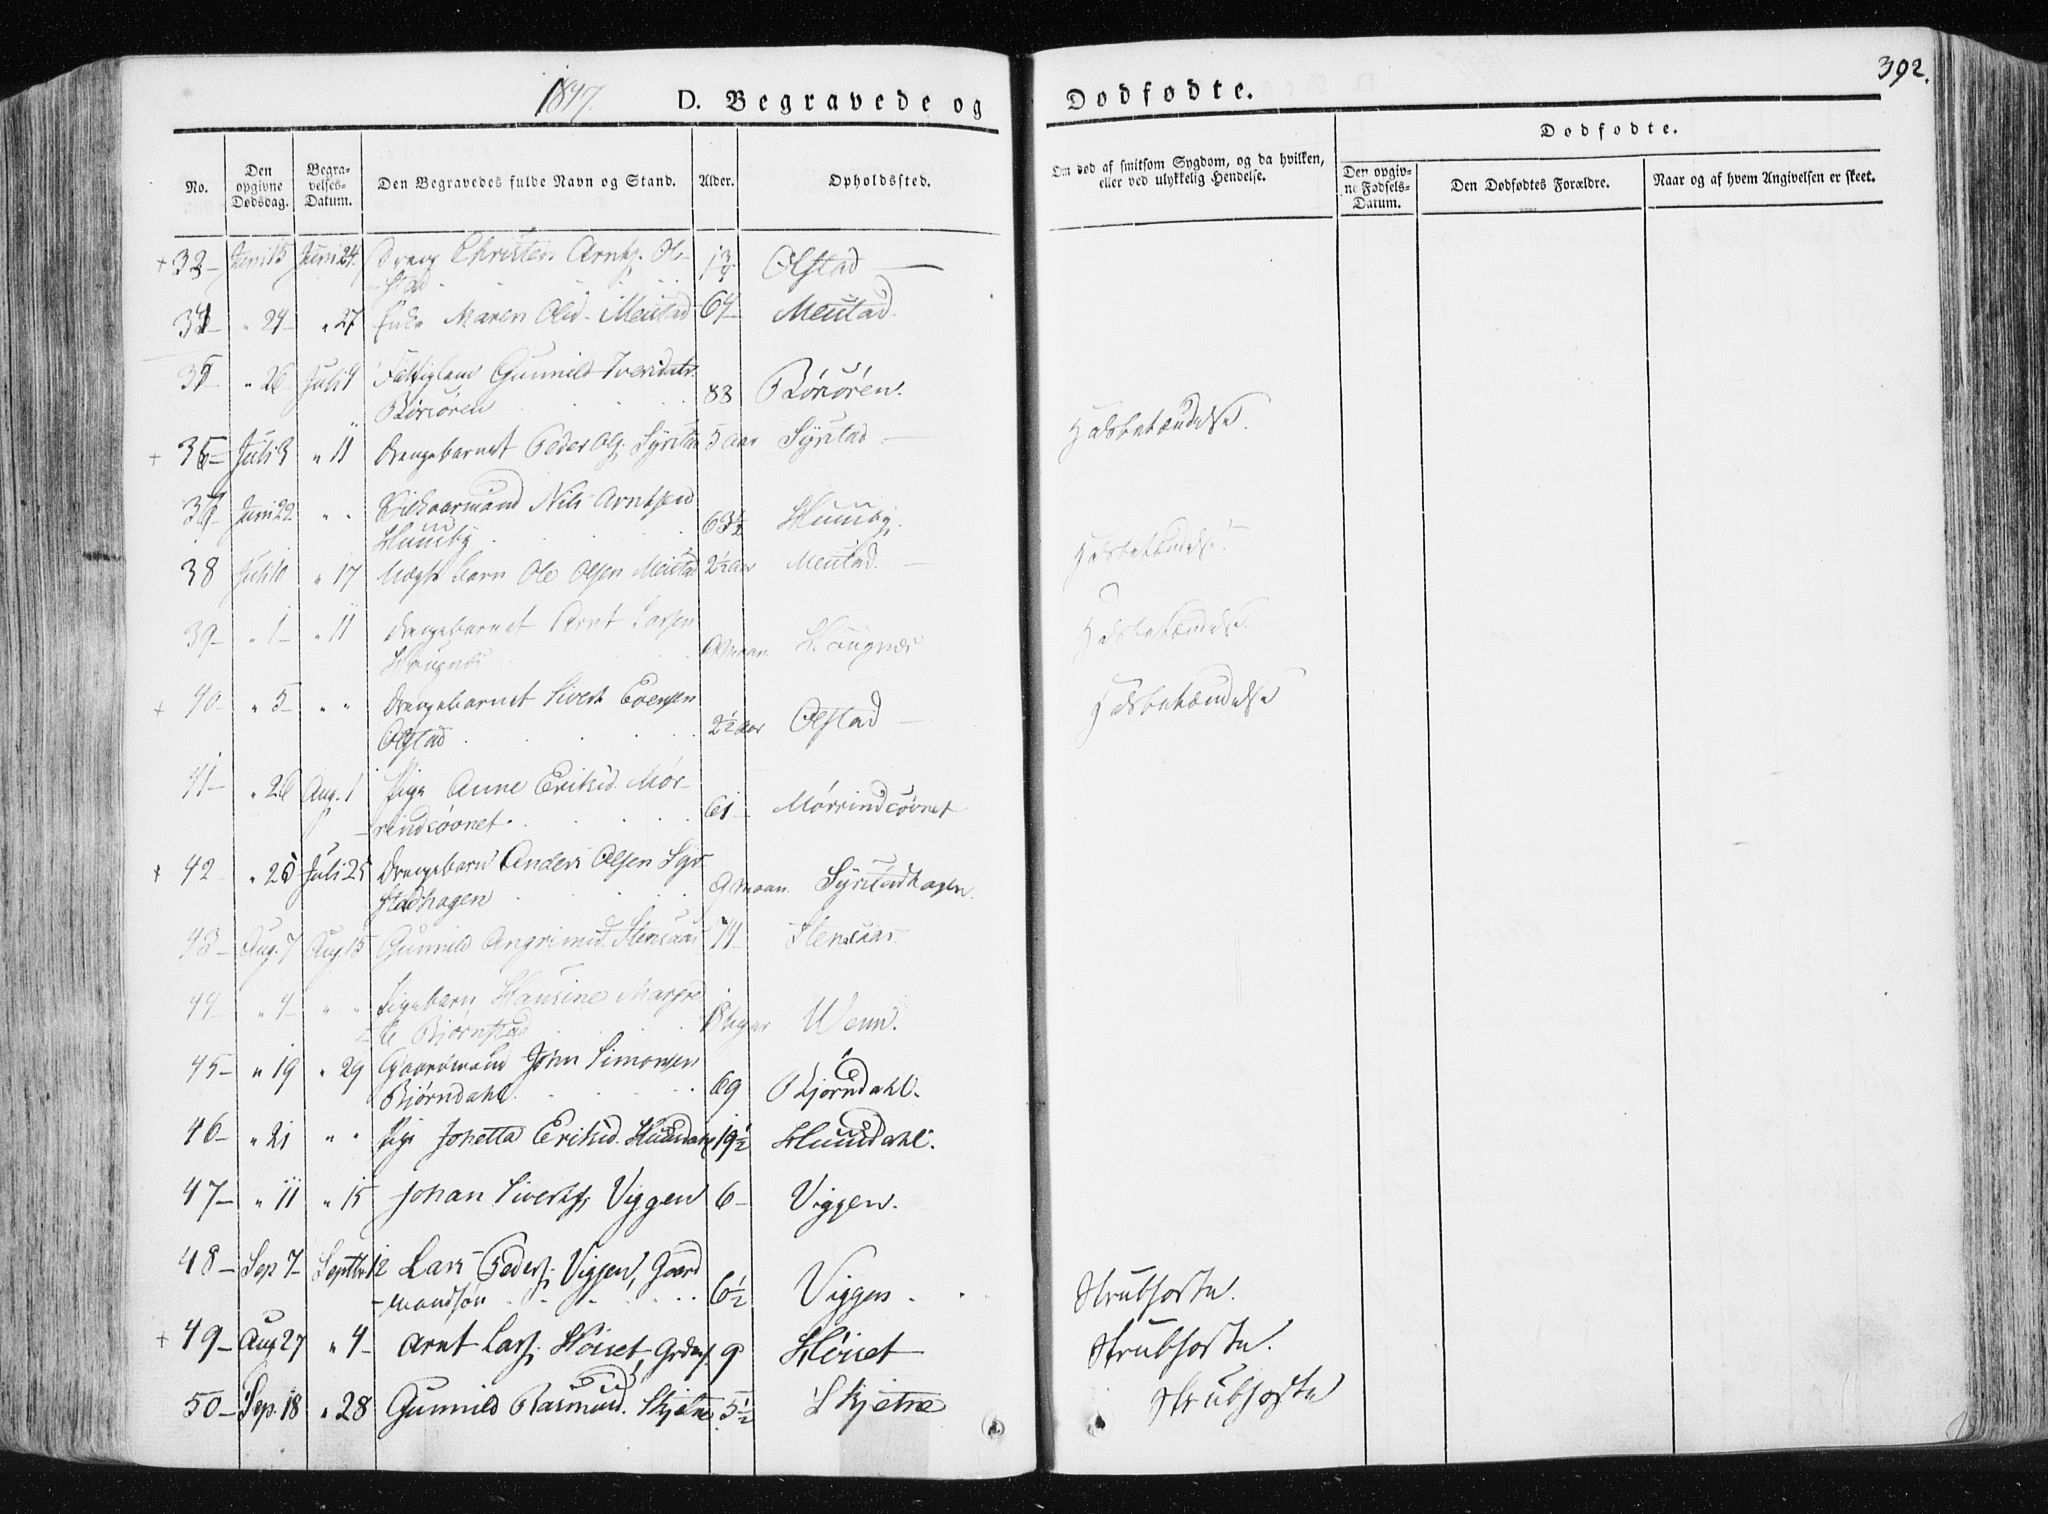 1847. D. Begravede og Dodfodte. 392.
No. Den opgivne Dødsdag. Begravelses-Datum. Den Begravedes fulde Navn og Stand. Alder. Opholdssted. Om død af smitsom Sygdom, og da hvilken, eller ved ulykkelig Hendelse. Dodfodte.
Den opgivne Fødsels-Datum. Den Dødfødtes Forældre. Naar og af hvem Angivelsen er skeet.
+ 33 - Juni 15 Juni 24. Dreng Christen Arntz. Ol-
stad 1 3/4 Olstad —
34 - " 24 - " 27 Enke Maren Olsd. Meustad 64 Meustad.
35 " 26 Juli 4 Fattiglem Gunnild Iversdatr.
Börsören 88 Börsören.
+ 36 - Juli 3 " 11 Drengebarnet Peder Ols. Syrstad 5 aar Syrstad — Halsbetændelse.
37 - Juni 22 " " Kirkaarmand Nils Arntsen
Huuseby 63 1/2 Huuseby.
38 Juli 10 " 17 Ole Olsen Meustad 2 1/2 aar Meustad. — Halsbetændelse.
39 - " 1 - " 11 Drengebarnet Arnt Larsen
Hougnes maan. Hougnes Halsbetændelse.
+ 40 - " 5 - " " Drengebarnet Sivert Evensen
Olstad 2 1/2 aar Olstad — Halsbetændelse
41 - " 26 Aug. 1 Pige Anne Eriksd. Mör-
rindsövnet. 61 - Mörrindsövnet
+ 42 " 20 Juli 25 Drengebarn Anders Olsen Syr-
stadhagen 9 maan. Syrstadhagen.
43 - Aug. 7 Aug 15 Gunnild Angrimsd. Stensaas 74 - Stensaas
44 - " 4 - " " Pigebarn Hansine Margre-
te Björnstad Wenn.
45 - " 19 " 29 Gaardmand John Simonsen
Björndahl. 69 Björndahl.
46 - " 21 " " Pige Johetta Eriksd. Huusdahl 19 1/2 Huusdahl.
47 - " 11 " 15 Johan Sivertsn Viggen 6 - Viggen.
48 - Sep 7 - Septbr 12 Lars Peders. Viggen, Gaard-
mandsön 6 1/2 Viggen. Strubhoste.
+ 49 - Aug 27 " 4 - Arnt Lars. Höiset, Grdms. 9 Höiset Strubhoste.
50 - Sep. 18 " 28 Gunnild Rasmusd. Skjetne 5 1/2 Skjetne Strubhoste